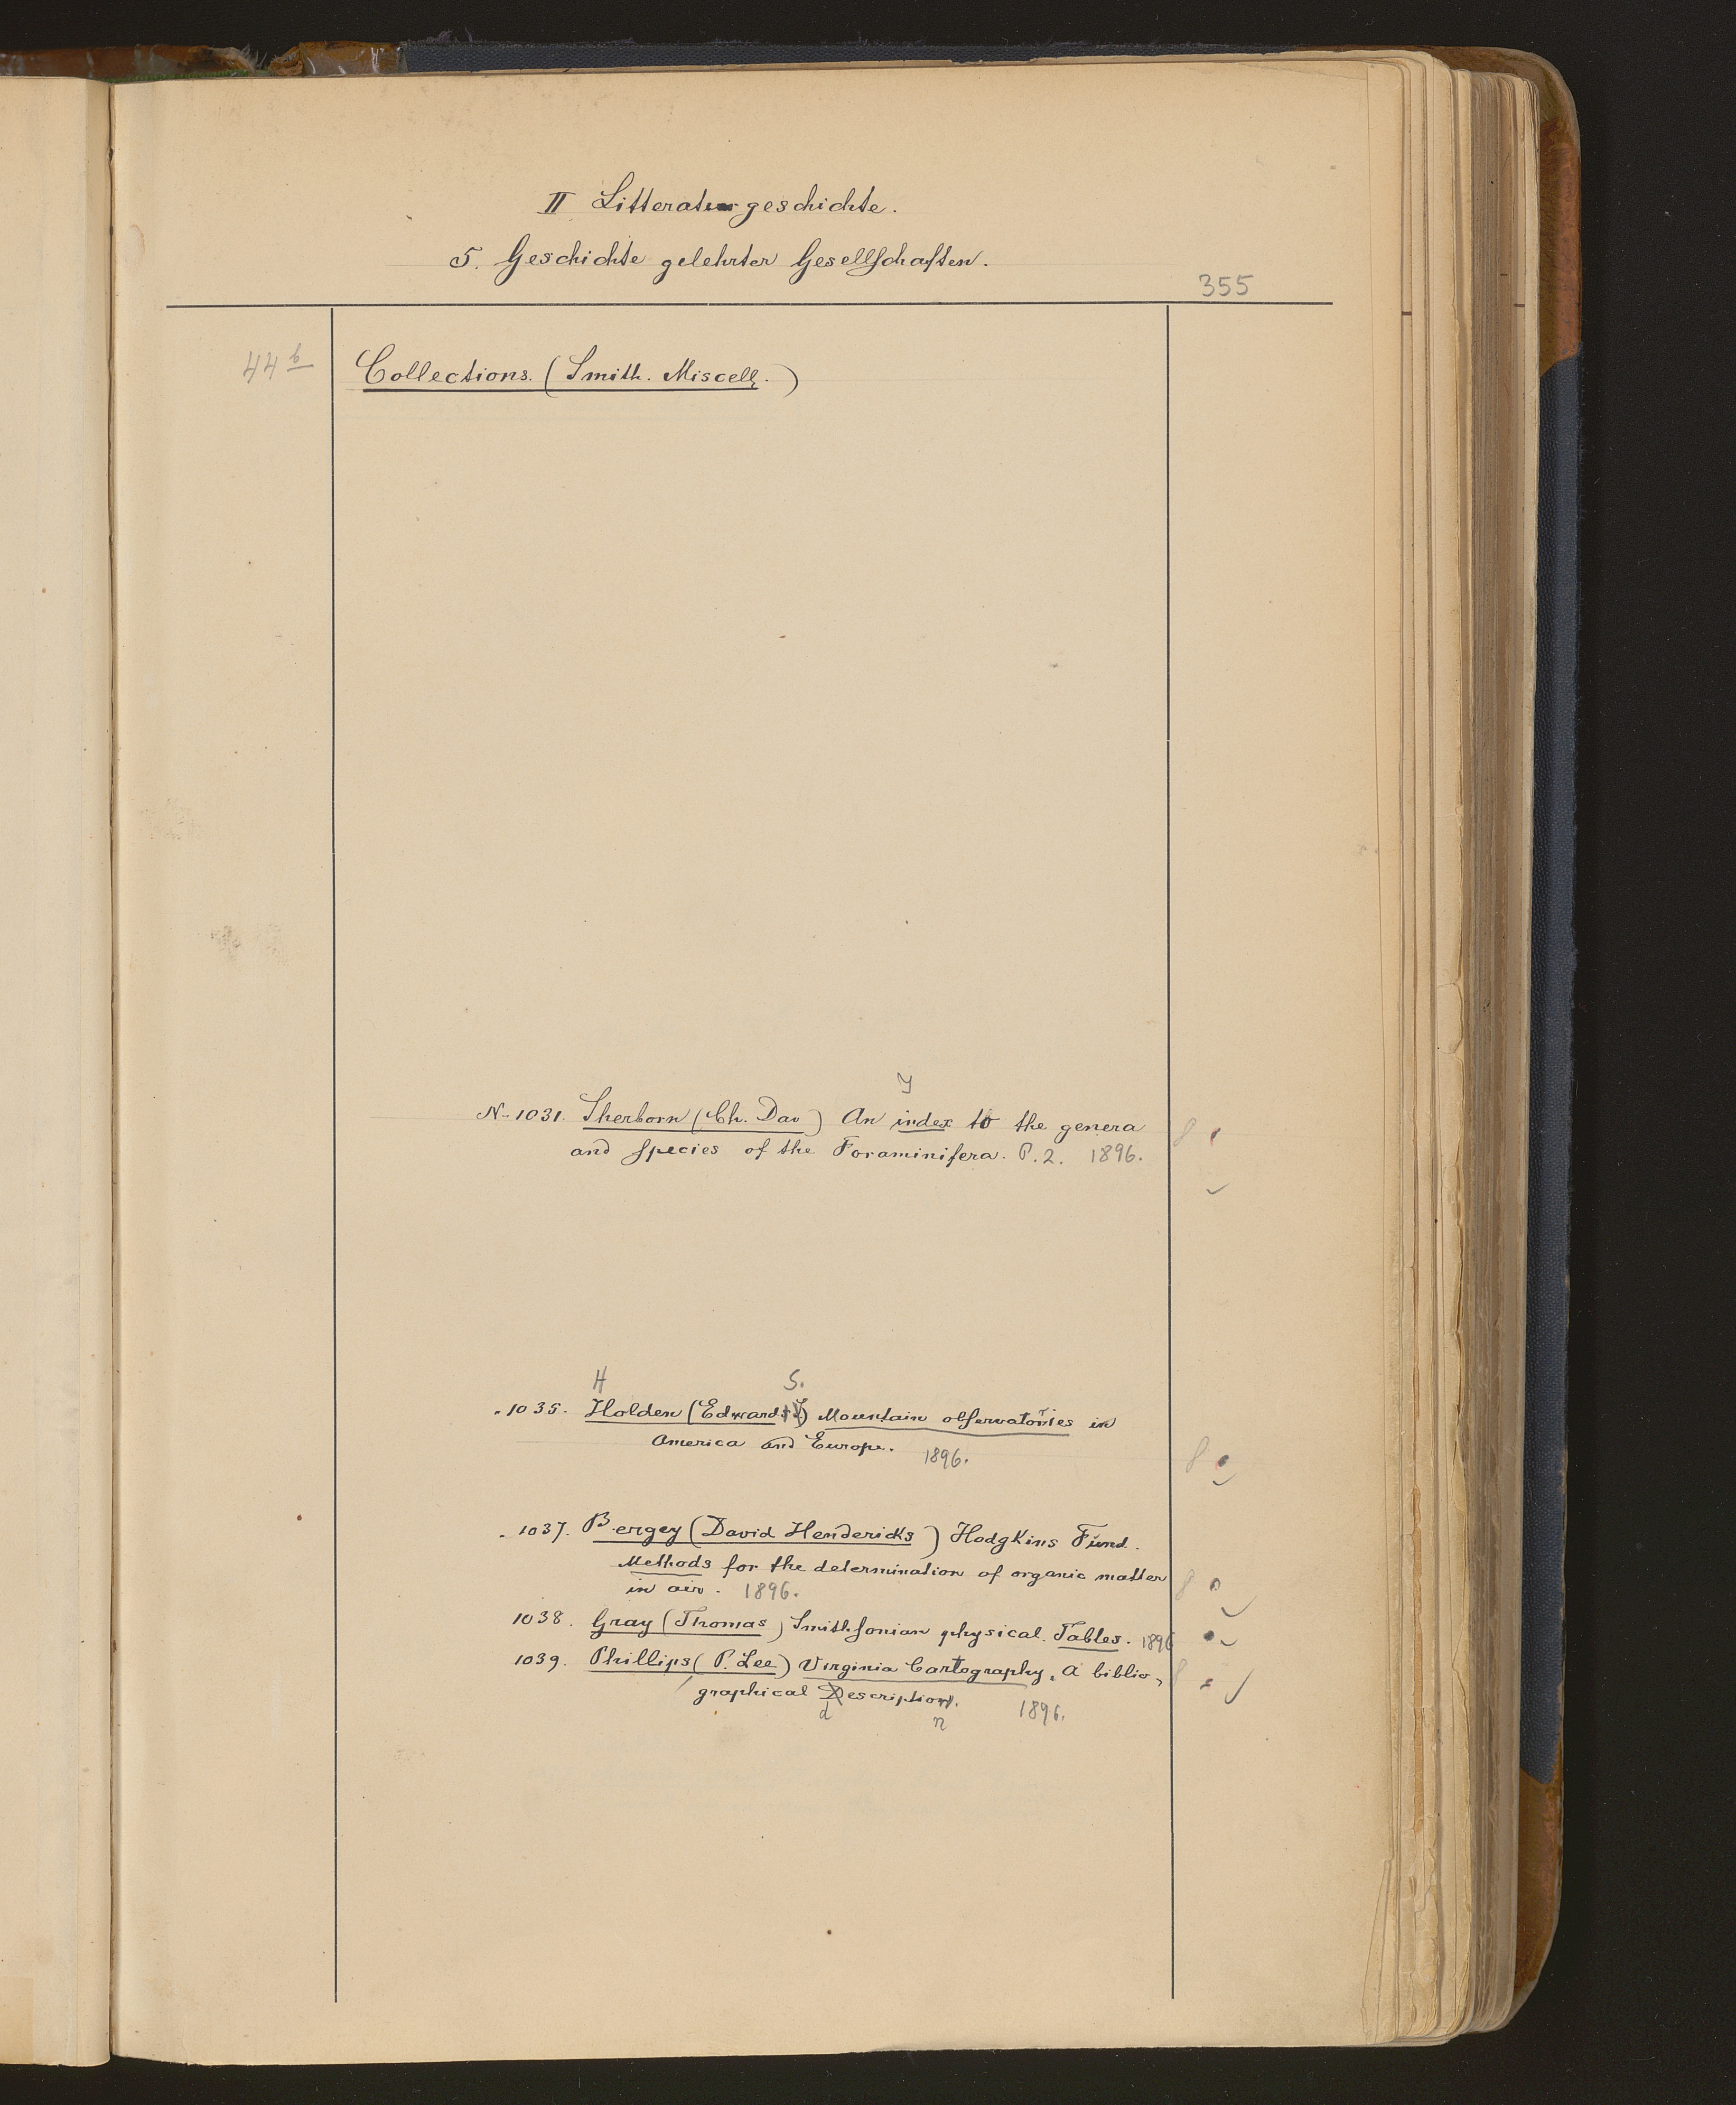 II Litteraturgeschichte.
5. Geschichte gelehrter Gesellschaften.
355
44 b
Collections. (Smith. Miscell.)
N- 1031. Sherborn (Ch. Dav) An index to the genera
and species of the Foraminifera. P. 2. 1896.
H S.
" 1035. Holden (Edward ) Mountain observatories in
America and Europe. 1896.
" 1037. Bergey (David Hendericks) Hodgkins Fund.
Methods for the determination of organic matter
in air. 1896.
1038. Gray (Thomas) Smithsonian physical Tables. 1896
1039. Phillips (P. Lee) Virginia Cartography, A biblio-
graphical Description. 1896.
d n